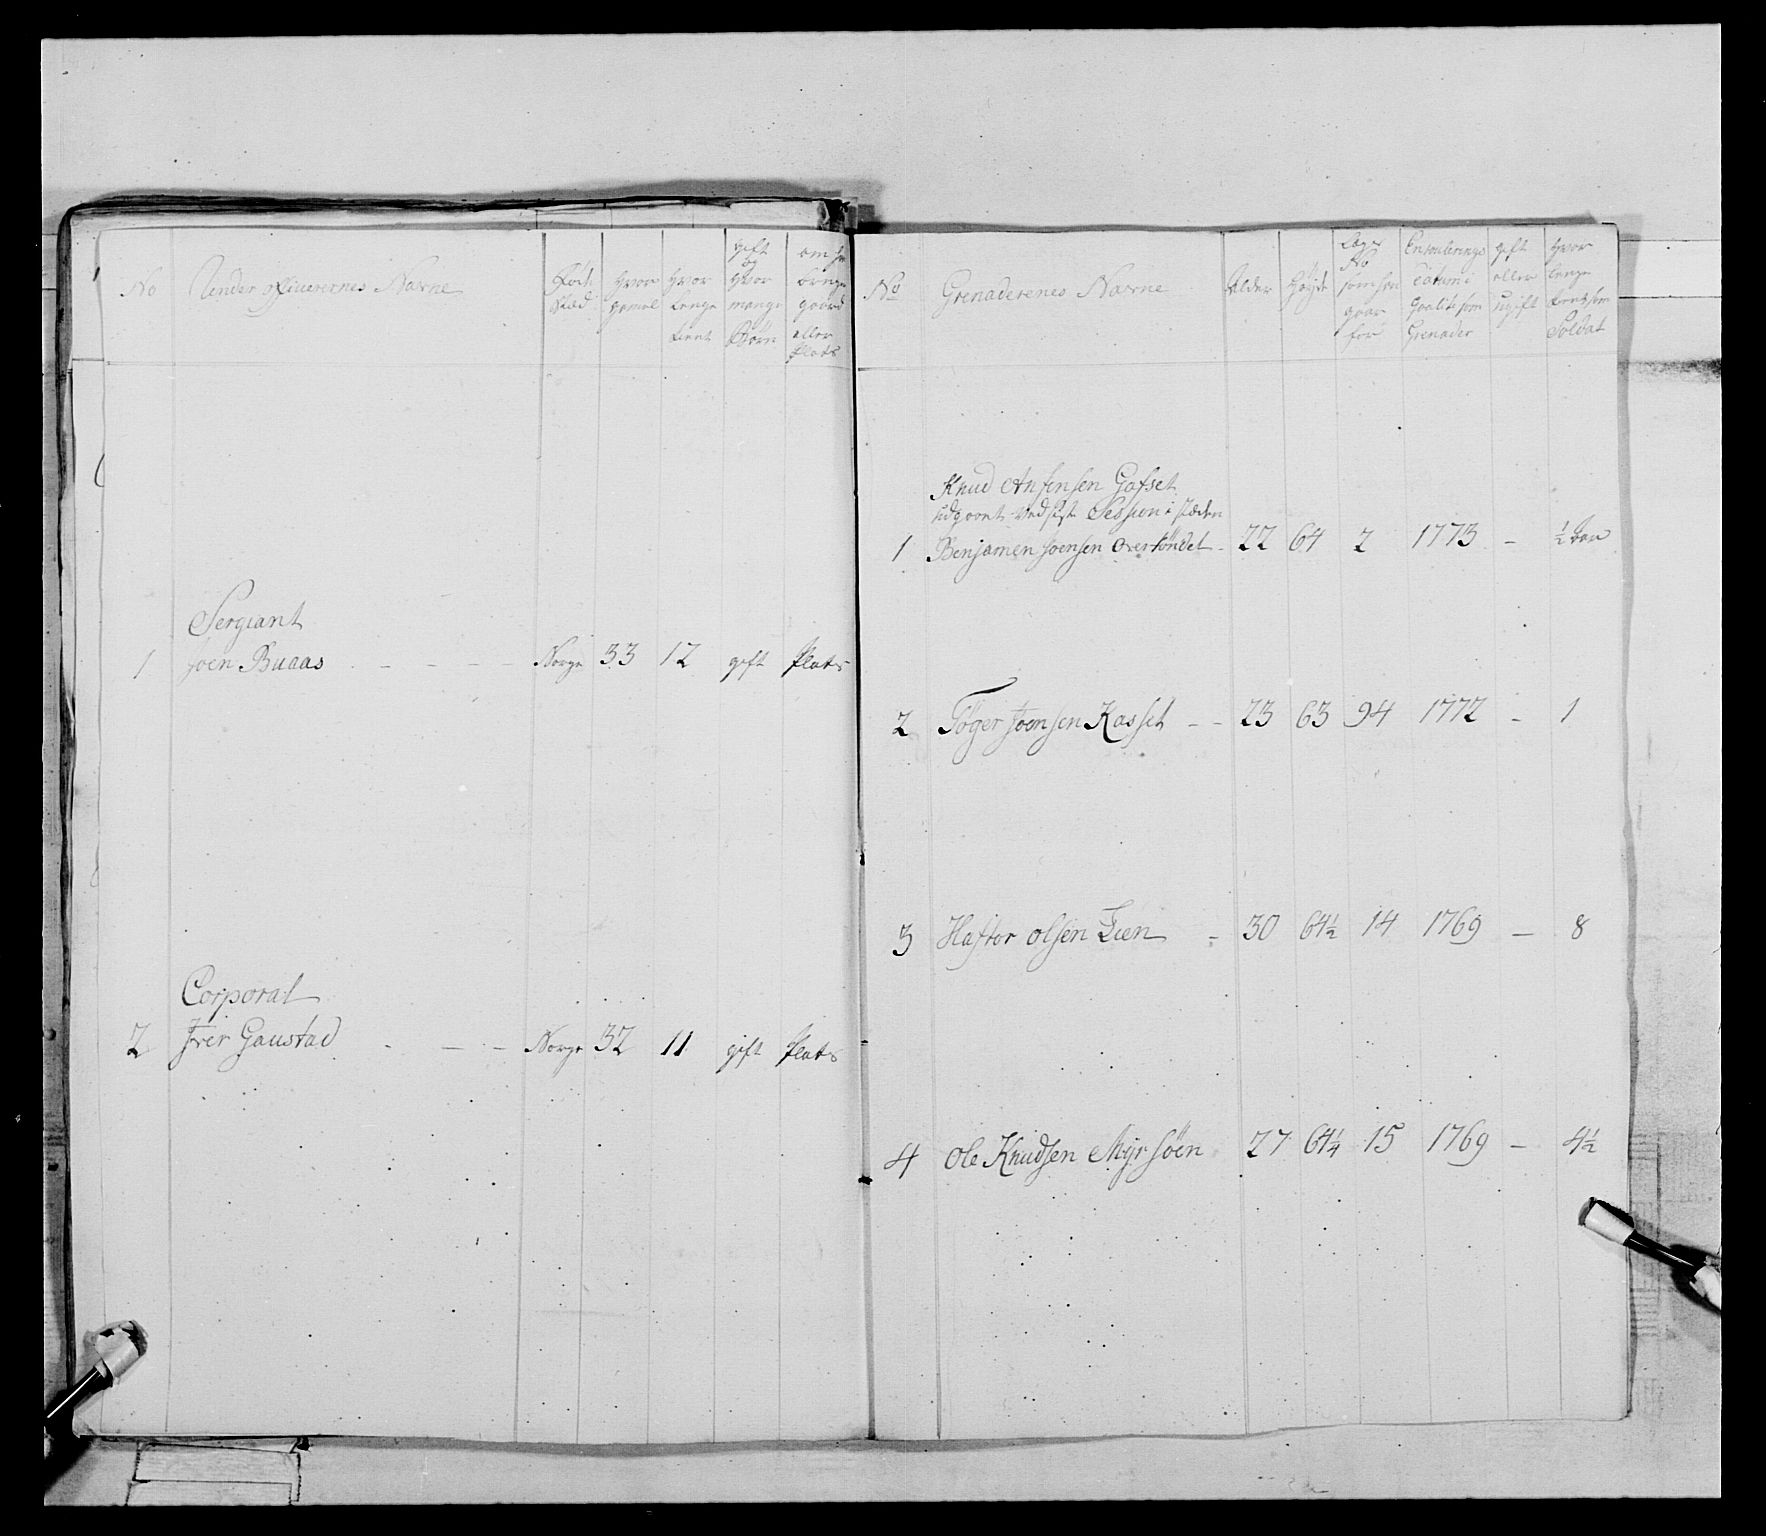 No
Under officerernes Navne
Fød
Stad
Hvor
gamel
Hvor
lenge
tient
gift
og
Hvor
mange
Børn
om
gaard
eller
Plads
Sergiant
1 Joen Buaas - - - - Norge 33 12 gift Plads
Corporal
2 Iver Gaustad - - - Norge 32 11 gift Plads
No
Grenaderenes Navne
Alder
Høyde
Lægs
No
som han
gaar
for
datum i
qualite som
Grenader
gift
eller
ugift
Hvor
lenge
tient som
Soldat
Knud Ansensen Gafset
udgaaet ved sist Session i stæden
1 Benjamen Joensen Oversöndet - 22 64 2 1773 - ½ aar
2 Töger Joensen Kasset - - 23 63 94 1772 - 1
3 Haftor olsen Lien - 30 64½ 14 1769 - 8
4 Ole Knudsen Myrsöen 27 64¼ 15 1769 - 4½